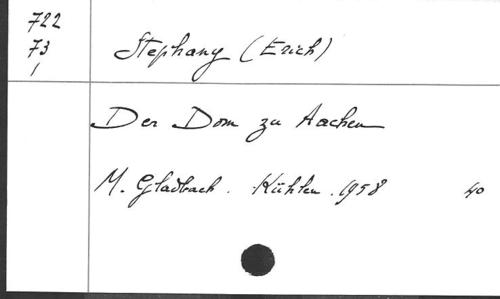 722
73
1
Stephany (Erich)
Der Dom zu Aachen
M. Gladbach. Kühlen. 1958 40